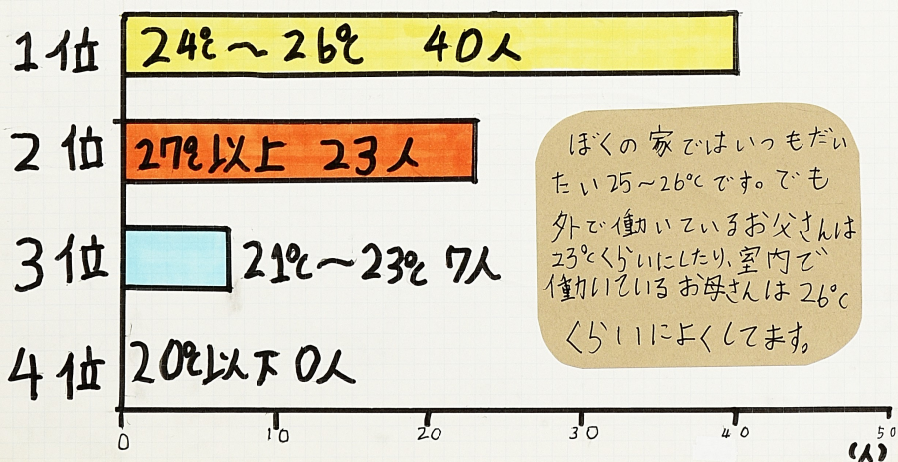 1位 24℃〜26℃ 40人
2位 27℃以上 23人
3位 21℃〜23℃ 7人
4位 20℃以下 0人
0 10 20 30 40 50
(人)
ぼくの家ではいつもだい
たい25〜26℃です。でも
外で働いているお父さんは
23℃くらいにしたり、室内で
働いているお母さんは26℃
くらいによくしてます。